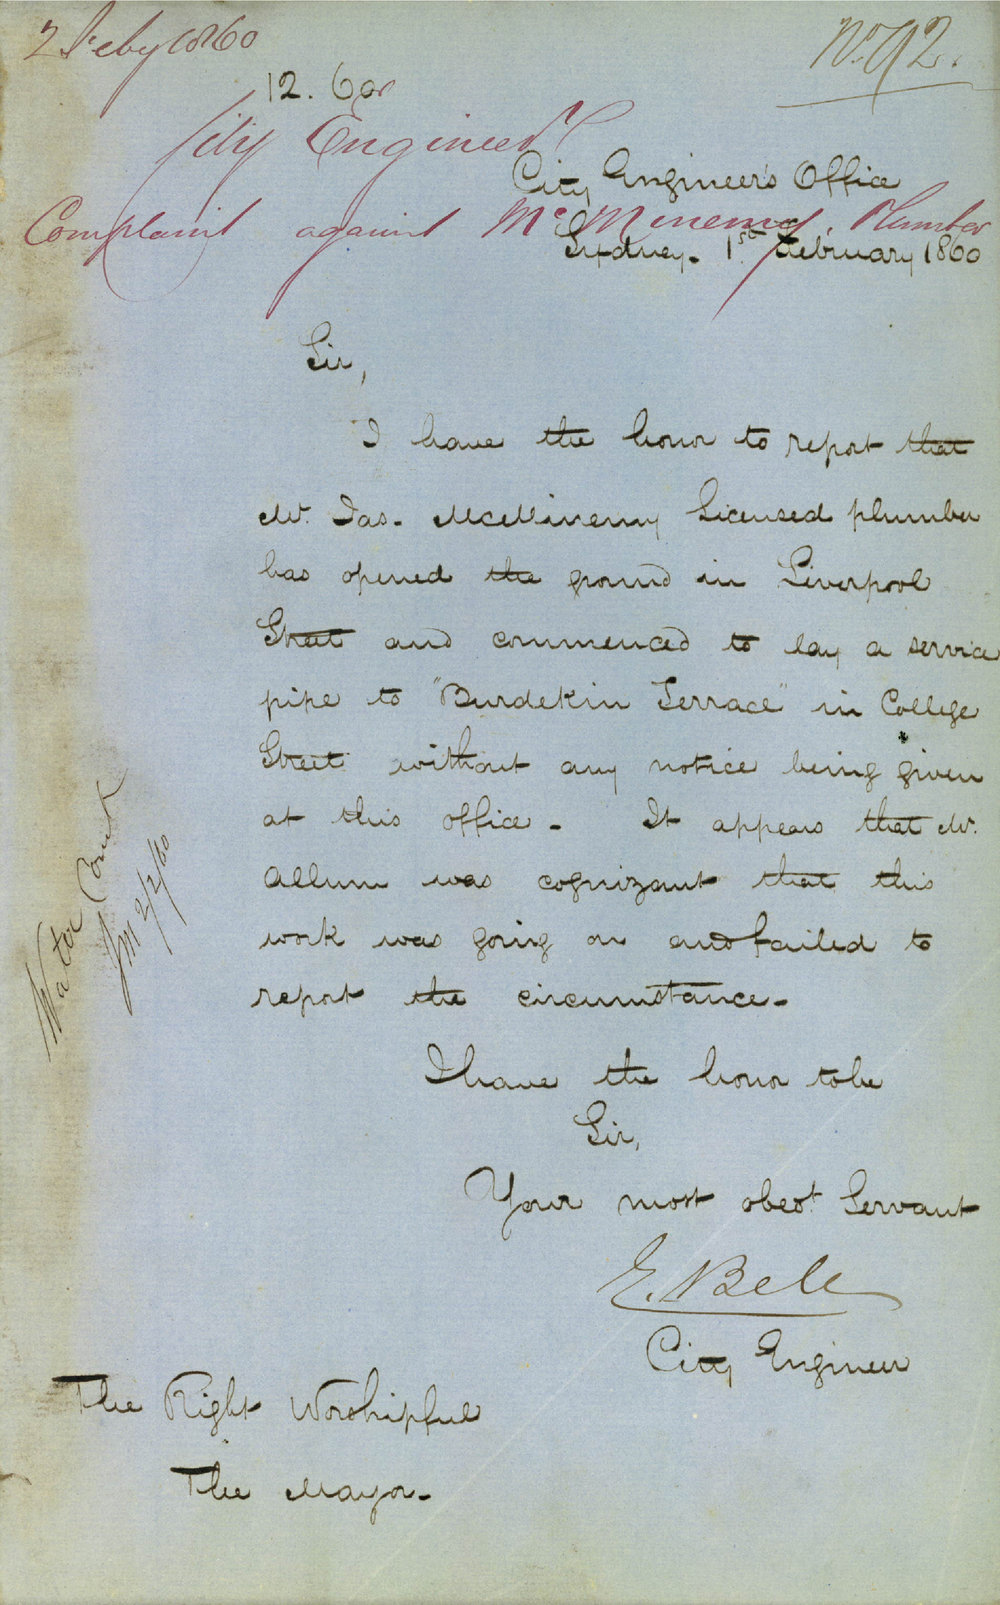 2 Feby 1860
No. 92.
12. 60
City Engineer
City Engineer's Office
Complaint against McMinemy, Plumber
Sydney. 1st February 1860
Sir,
I have the honor to report that
Mr. Jas. McMinemy Licensed plumber
has opened the ground in Liverpool
Street and commenced to lay a service
pipe to "Burdekin Terrace" in College
Street without any notice being given
at this office - It appears that Mr.
Allum was cognizant that this
work was going on and failed to
report the circumstance -
I have the honor to be
Sir,
Your most obedt. Servant
E. Bell
City Engineer
The Right Worshipful
The Mayor -
Water Comt
2/2/60